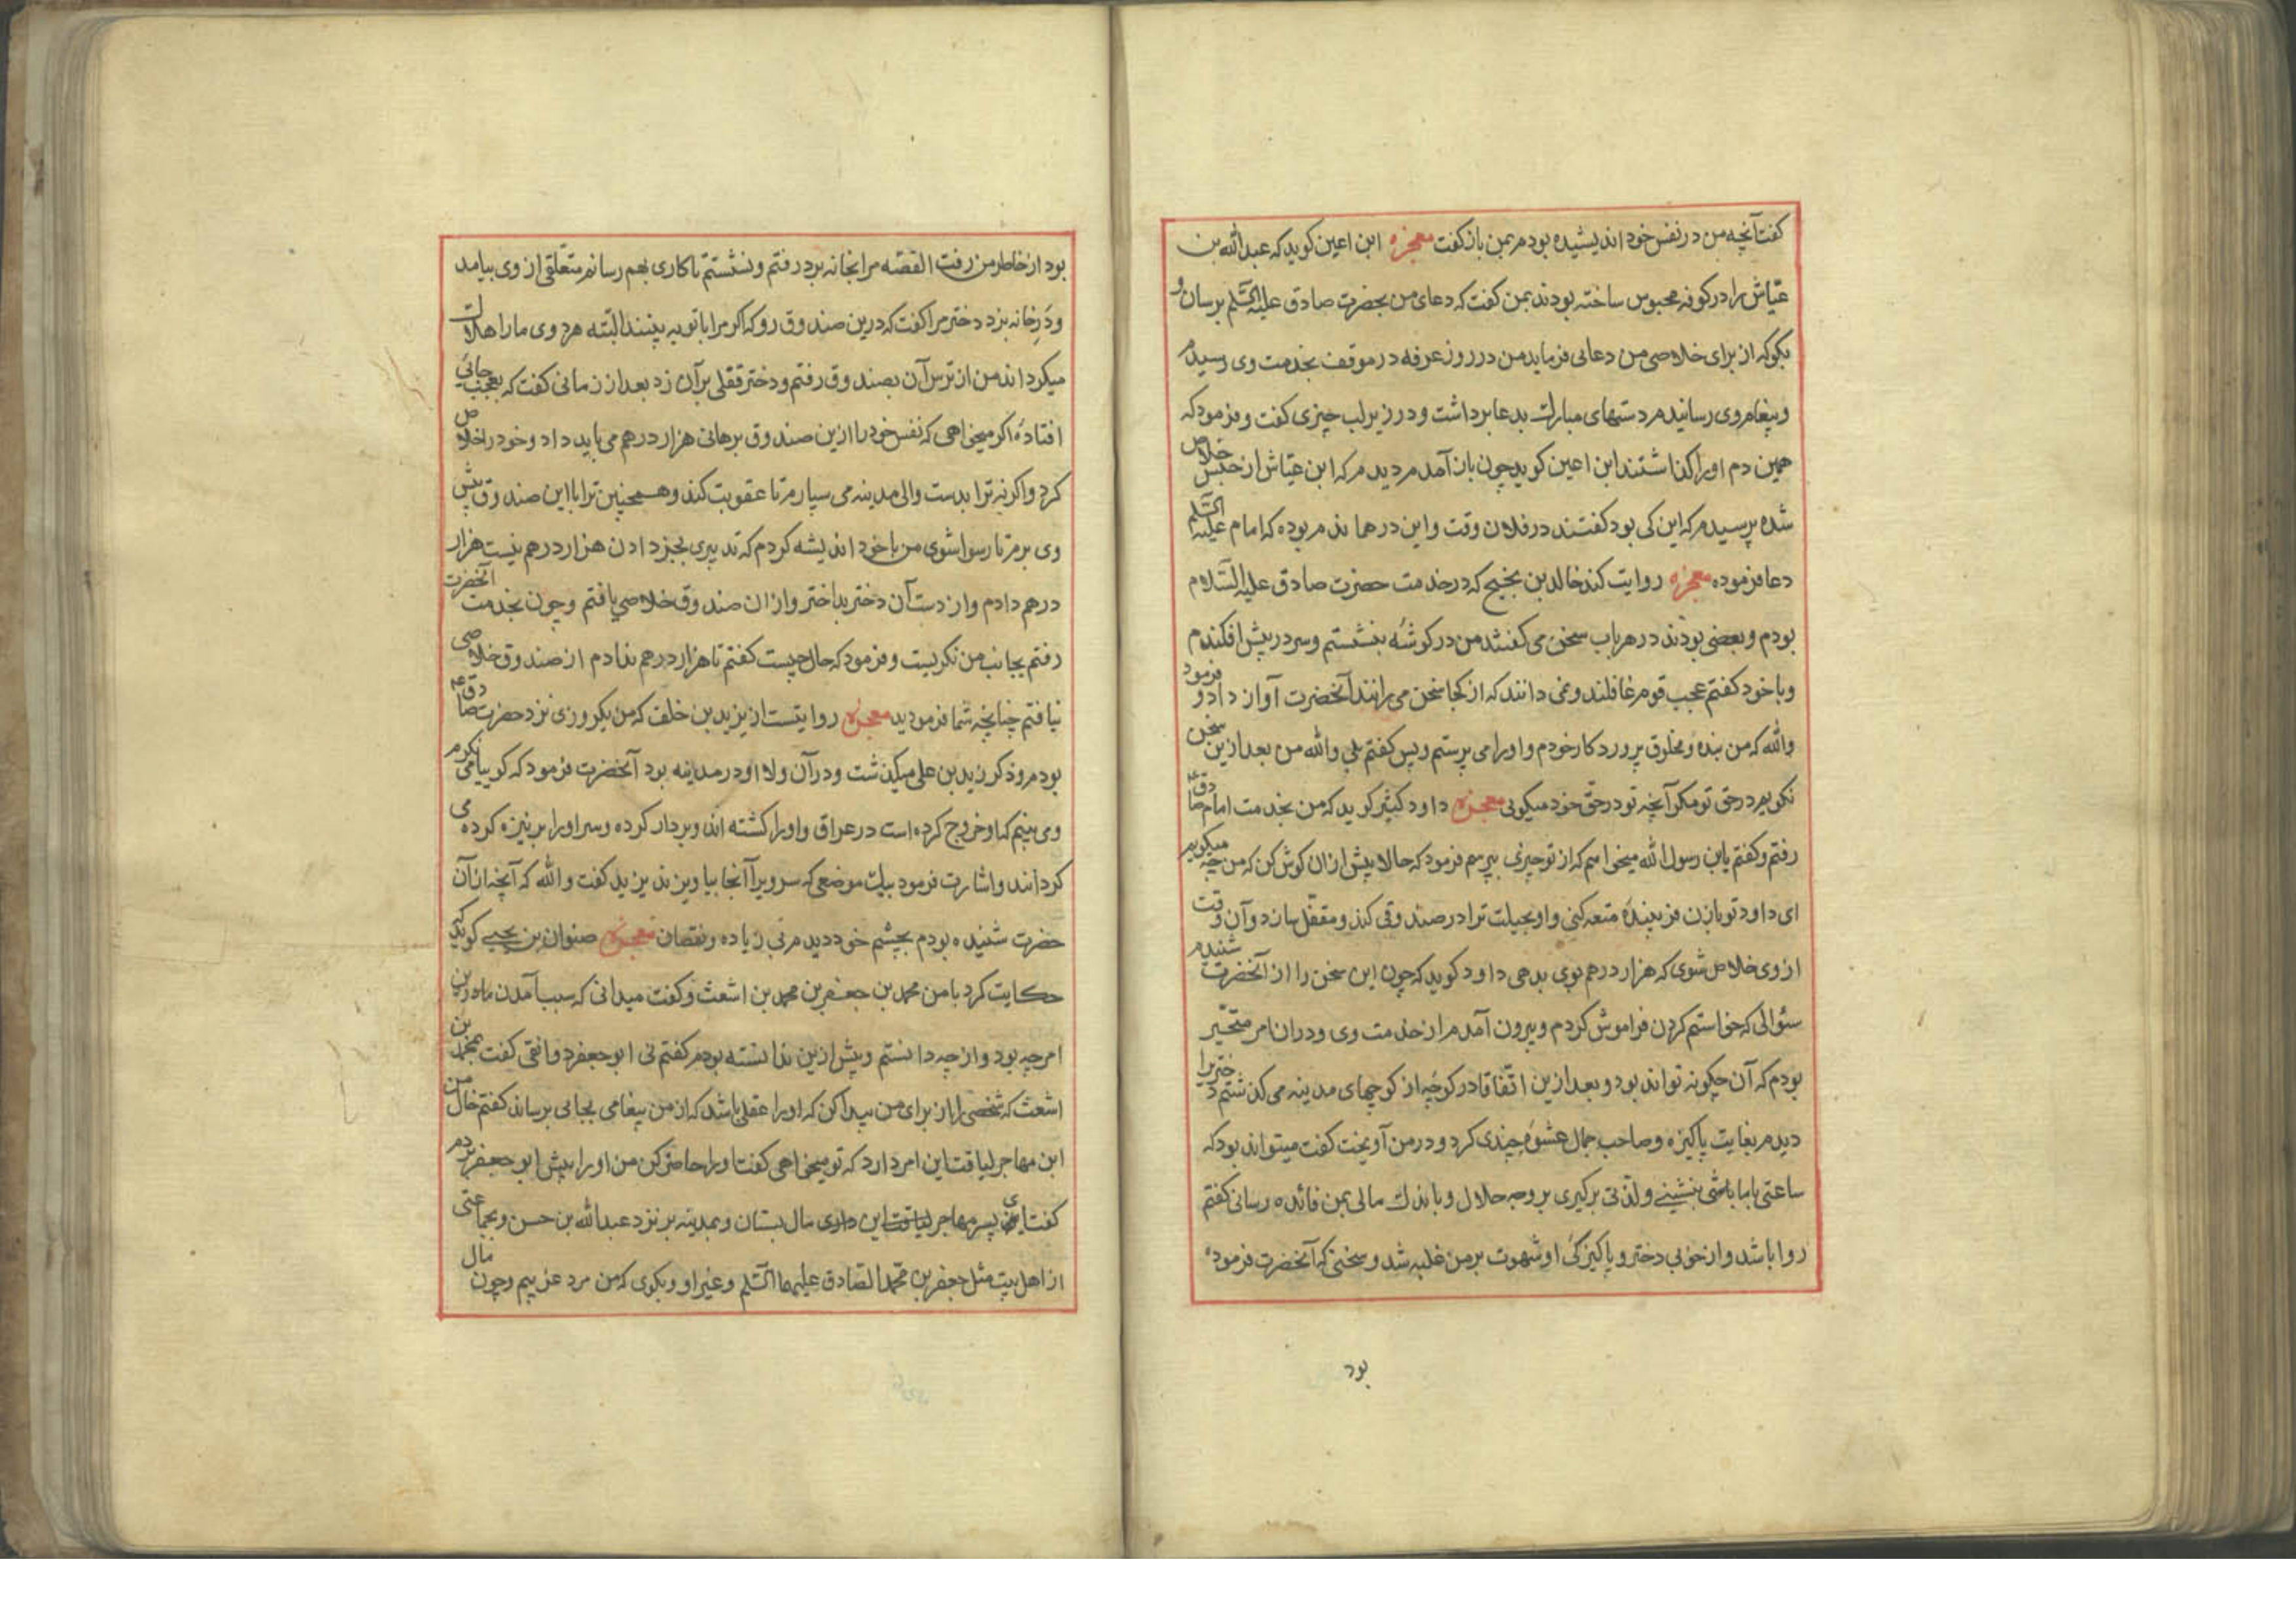 گفت آنچه من در نفس خود اندیشیده بودم بمن باز گفت معجزه ابن اعین کوید که عبدالله بن
عیّاش را در کوفه محبوس ساخته بودند بمن کفت که دعای من بحضرت صادق علیه السّلم برسان و
بکو که از برای خلاصی من دعایی فرماید من در روز عرفه در موقف بخدمت وی رسیدم
و پیغام وی رسانیدم دستهای مبارک بدعا برداشت و در زیر لب چیزی کفت و فرمود که
همین دم او را کذاشتند ابن اعین کوید چون باز آمدم دیدم که ابن عیّاش از حبس خلاص
شده پرسیدم که این کی بود کفتند در فلان وقت و این در همان دم بوده که امام علیه السّلم
دعا فرموده معجزه روایت کند خالد بن بخیج که در خدمت حضرت صادق علیه السّلام
بودم و بعضی بودند در هر باب سخن می کفتند من در کوشه بنشستم و سر در پیش افکندم
و با خود کفتم عجب قوم غافلند و نمی دانند که از کجا سخن می رانند آنحضرت آواز داد و فرمود
والله که من بنده و مخلوق پروردکار خودم و او را می پرستم و پس کفتم بلی والله من بعد ازین سخن
نکویم در حق تو مکر آنچه تو در حقّ خود میکویی معجزه داود کثیر کوید که من بخدمت امام صادق ع
رفتم و کفتم یابن رسول الله میخواهم که از تو چیزی بپرسم فرمود که حالا پیش از ان کوش کن که من چه میکویم
ای داود تو با زن فریبنده متعه کنی و او بحیلت ترا در صندوقی کند و مقفّل سازد و آن وقت
از وی خلاص شوی که هزار درهم بوی بدهی داود کوید که چون این سخن را از آنحضرت شنیدم
سئوالی که خواستم کردن فراموش کردم و بیرون آمدم از خدمت وی و در ان امر متحیّر
بودم که آن چکونه تواند بود و بعد ازین اتّفاقا در کوچه از کوچهای مدینه می کذشتم دختریرا
دیدم بغایت پاکیزه و صاحب جمال عشوه چندی کرد و در من آویخت کفت میتواند بود که
ساعتی با ما باشی بنشینی و لذّتی برکیری بر وجه حلال و باندک مالی بمن فائده رسانی کفتم
روا باشد و از خوبی دختر و پاکیزکی او شهوت بر من غلبه شد و سخنی که آنحضرت فرموده
بود
بود از خاطر من رفت القصّه مرا بخانه برد رفتم و نشستم تا کاری بهم رسانم متعلّقی از وی بیامد
و در خانه بزد دختر مرا کفت که درین صندوق رو که اکر مرا با تو به بینند البتّه هر دوی ما را هلاک
میکردانند من از ترس آن بصندوق رفتم و دختر قفلی بر آن زد بعد از زمانی کفت که بعجب جائی
افتاده اکر میخواهی که نفس خود را ازین صندوق برهانی هزار درهم می باید داد و خود را خلاص
کرد و اکر نه ترا بدست والی مدینه می سپارم تا عقوبت کند و همچنین ترا با این صندوق پیش
وی برم تا رسوا شوی من با خود اندیشه کردم که تدبیری بجز دادن هزار درهم نیست هزار
درهم دادم و از دست آن دختر بد اختر و از ان صندوق خلاصی یافتم و چون بخدمت آنحضرت
رفتم بجانب من نکریست و فرمود که حال چیست کفتم تا هزار درهم ندادم از صندوق خلاصی
نیافتم چنانچه شما فرمودید معجزه روایتست از یزید بن خلف که من یکروزی نزد حضرت صادق ع
بودم و ذکر زید بن علی میکذشت و در آن ولا او در مدینه بود آنحضرت فرمود که کوییا می نکرم
وی بینم که او خروج کرده است در عراق و او را کشته اند و بردار کرده و سر او را بر نیزه کرده می
کردانند و اشارت فرمود بیک موضعی که سر ویرا آنجا بیاویزند یزید کفت والله که آنچه از آن
حضرت شنیده بودم بچشم خود دیدم بی زیاده و نقصان معجزه صفوان بن یحیی کوید که
حکایت کرد با من محمد بن جعفر بن محمد بن اشعث و کفت میدانی که سبب آمدن ما درین
امر چه بود و از چه دانستم و پیش ازین ندانسته بودم کفتم نی ابو جعفر دوانقی کفت بمحمّد بن
اشعث که شخصی را از برای من پیدا کن که او را عقلی باشد که از من پیغامی بجایی برساند کفتم خال من
ابن مهاجر لیاقت این امر دارد که تو میخواهی کفت او را حاضر کن من او را پیش ابو جعفر بردم
کفت ای پسر مهاجر این مال بستان و بمدینه بر نزد عبدالله بن حسن و بجماعتی
از اهل بیت مثل جعفر بن محمّد الصّادق علیهما السّلم و غیر او و بکوی که من مرد غریبم و چون مال